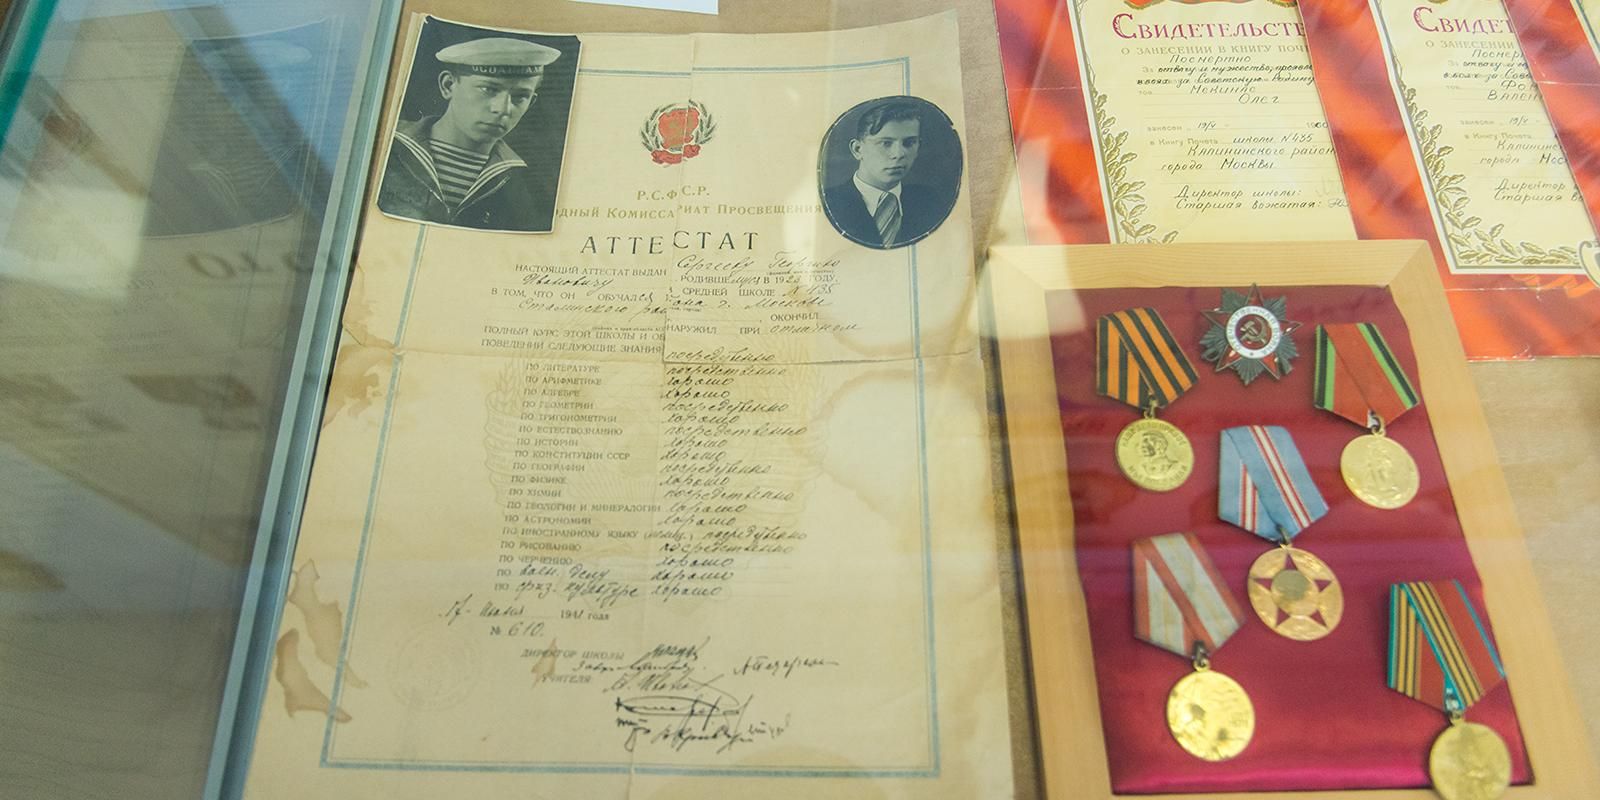 Р.С.Ф.С.Р.
одный Комиссариат Просвещения
АТТЕСТАТ
НАСТОЯЩИЙ АТТЕСТАТ ВЫДАН Сергееву Георгию
Ивановичу РОДИВШЕМУСЯ В 1923 ГОДУ,
В ТОМ, ЧТО ОН ОБУЧАЛСЯ В СРЕДНЕЙ ШКОЛЕ № 435
Сталинского рай она г. Москвы
ОКОНЧИЛ
ПОЛНЫЙ КУРС ЭТОЙ ШКОЛЫ И ОБНАРУЖИЛ ПРИ отличном
ПОВЕДЕНИИ СЛЕДУЮЩИЕ ЗНАНИЯ:
посредственно
ПО ЛИТЕРАТУРЕ посредственно
ПО АРИФМЕТИКЕ хорошо
ПО АЛГЕБРЕ хорошо
ПО ГЕОМЕТРИИ посредственно
ПО ТРИГОНОМЕТРИИ хорошо
ПО ЕСТЕСТВОЗНАНИЮ посредственно
ПО ИСТОРИИ хорошо
ПО КОНСТИТУЦИИ СССР хорошо
ПО ГЕОГРАФИИ посредственно
ПО ФИЗИКЕ хорошо
ПО ХИМИИ посредственно
ПО ГЕОЛОГИИ И МИНЕРАЛОГИИ хорошо
ПО АСТРОНОМИИ хорошо
ПО ИНОСТРАННОМУ ЯЗЫКУ (немец.) посредственно
ПО РИСОВАНИЮ посредственно
ПО ЧЕРЧЕНИЮ хорошо
ПО воен. делу хорошо
ПО физ. культуре хорошо
1941 года
№ 610.
ДИРЕКТОР ШКОЛЫ
УЧИТЕЛЯ:
Свидетельств
О ЗАНЕСЕНИИ В КНИГУ ПОЧ
Посмертно
За отвагу и мужество, проявл
в боях за Советскую Родину
тов Мекинас
Олег
занесен „19/V 1960
в Книгу Почета школы №435
Калининского район
города Москвы
Директор школы:
Старшая вожатая:
Свидет
О ЗАНЕСЕНИИ
Посмерт
За отвагу и м
в боях за Сове
тов Фом
Вален
занесен „19/V
в Книгу Почета
Калининс
города Мос
Директор
Старшая во
ОТЕЧЕСТВЕННАЯ ВОЙНА